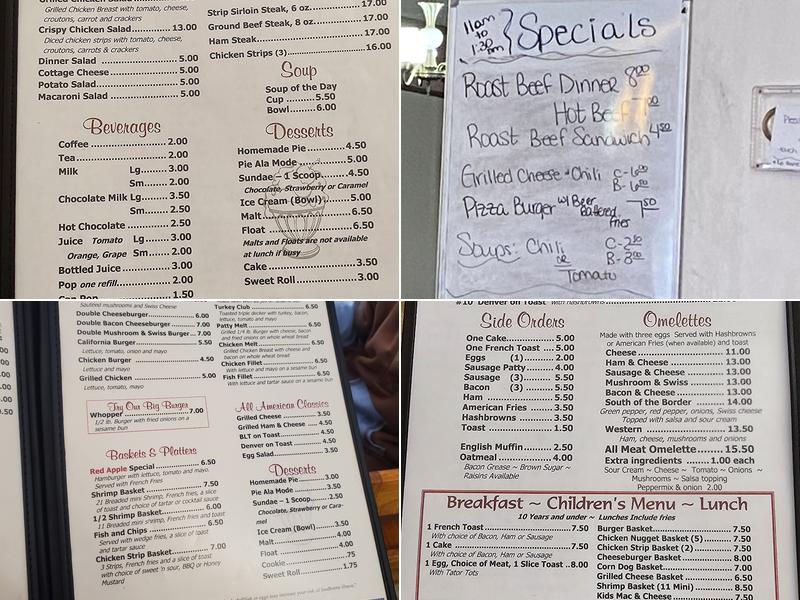 Grilled Chicken Breast with tomato, cheese,
croutons, carrot and crackers
Crispy Chicken Salad 13.00
Diced chicken strips with tomato, cheese,
croutons, carrots & crackers
Dinner Salad 5.00
Cottage Cheese 5.00
Potato Salad 5.00
Macaroni Salad 5.00
Beverages
Coffee 2.00
Tea 2.00
Milk Lg. 3.00
Sm. 2.00
Chocolate Milk Lg. 3.50
Sm. 2.50
Hot Chocolate 2.50
Juice Tomato Lg. 3.00
Orange, Grape Sm. 2.00
Bottled Juice 3.00
Pop one refill 2.00
1.50
Strip Sirloin Steak, 6 oz. 17.00
Ground Beef Steak, 8 oz. 17.00
Ham Steak 17.00
Chicken Strips (3) 16.00
Soup
Soup of the Day
Cup 5.50
Bowl 6.00
Desserts
Homemade Pie 4.50
Pie Ala Mode 5.00
Sundae – 1 Scoop 4.50
Chocolate, Strawberry or Caramel
Ice Cream (Bowl) 5.00
Malt 6.50
Float 6.50
Malts and Floats are not available
at lunch if busy
Cake 3.50
Sweet Roll 3.00
11am
to
1:30
pm
Specials
Roast Beef Dinner 8.00
Hot Beef
Roast Beef Sandwich 4.50
Grilled Cheese + Chili C-6.00
B-6.00
Pizza Burger w/ Beer
Battered
Fries 7.50
Soups: Chili C-2.50
or B-3.00
Tomato
Sauteed mushrooms and Swiss Cheese
Double Cheeseburger 6.00
Double Bacon Cheeseburger 7.00
Double Mushroom & Swiss Burger 7.00
California Burger 5.50
Lettuce, tomato, onion and mayo
Chicken Burger 4.50
Lettuce and mayo
Grilled Chicken 5.00
Lettuce, tomato, mayo
Try Our Big Burger
Whopper 7.00
1/2 lb. Burger with fries on a
sesame bun
Baskets & Platters
Red Apple Special 6.50
Hamburger with lettuce, tomato and mayo.
Served with French Fries
Shrimp Basket 7.50
21 Breaded mini Shrimp, French fries, a slice
of toast and choice of tartar or cocktail sauce
1/2 Shrimp Basket 6.00
11 Breaded mini shrimp, French fries and toast
Fish and Chips 6.50
Served with wedge fries, a slice of toast
and tartar sauce
Chicken Strip Basket 7.00
3 Strips, French fries and a slice of toast
with choice of sweet 'n sour, BBQ or Honey
Mustard
Turkey Club 6.50
Toasted triple decker with turkey, bacon,
lettuce, tomato and mayo
Patty Melt 6.50
Grilled 1/4 lb. Burger with cheese, bacon
and fried onions on whole wheat bread
Chicken Melt 6.50
Grilled Chicken Breast with cheese and
bacon on whole wheat bread
Chicken Fillet 6.50
With lettuce and mayo on a sesame bun
Fish Fillet 6.50
With lettuce and tartar sauce on a sesame bun
All American Classics
Grilled Cheese 3.50
Grilled Ham & Cheese 4.50
BLT on Toast 4.50
Denver on Toast 4.50
Egg Salad 3.50
Desserts
Homemade Pie 3.00
Pie Ala Mode 3.50
Sundae – 1 Scoop 2.50
Chocolate, Strawberry or Cara-
mel
Ice Cream (Bowl) 3.50
Malt 4.00
Float 4.00
Cookie .75
Sweet Roll 1.75
#10 Denver on Toast with hashbrowns
Side Orders
One Cake 5.00
One French Toast 5.00
Eggs (1) 2.00
Sausage Patty 4.00
Sausage (3) 5.50
Bacon (3) 5.50
Ham 5.50
American Fries 3.50
Hashbrowns 3.50
Toast 1.50
English Muffin 2.50
Oatmeal 4.00
Bacon Grease ~ Brown Sugar ~
Raisins Available
Omelettes
Made with three eggs Served with Hashbrowns
or American Fries (when available) and toast
Cheese 11.00
Ham & Cheese 13.00
Sausage & Cheese 13.00
Mushroom & Swiss 13.00
Bacon & Cheese 13.00
South of the Border 14.00
Green pepper, red pepper, onions, Swiss cheese
Topped with salsa and sour cream
Western 13.50
Ham, cheese, mushrooms and onions
All Meat Omelette 15.50
Extra ingredients 1.00 each
Sour Cream ~ Cheese ~ Tomato ~ Onions ~
Mushrooms ~ Salsa topping
Peppermix & onion 2.00
Breakfast ~ Children's Menu ~ Lunch
10 Years and under ~ Lunches Include fries
1 French Toast 7.50
With choice of Bacon, Ham or Sausage
1 Cake 7.50
With choice of Bacon, Ham or Sausage
1 Egg, Choice of Meat, 1 Slice Toast 8.00
With Tator Tots
Burger Basket 7.50
Chicken Nugget Basket (5) 7.50
Chicken Strip Basket (2) 7.50
Cheeseburger Basket 8.00
Corn Dog Basket 7.00
Grilled Cheese Basket 6.50
Shrimp Basket (11 Mini) 8.50
Kids Mac & Cheese 7.50